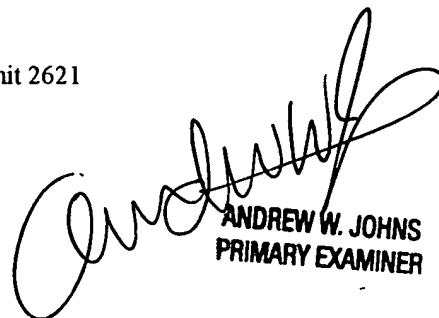 nit 2621
ANDREW W. JOHNS
PRIMARY EXAMINER